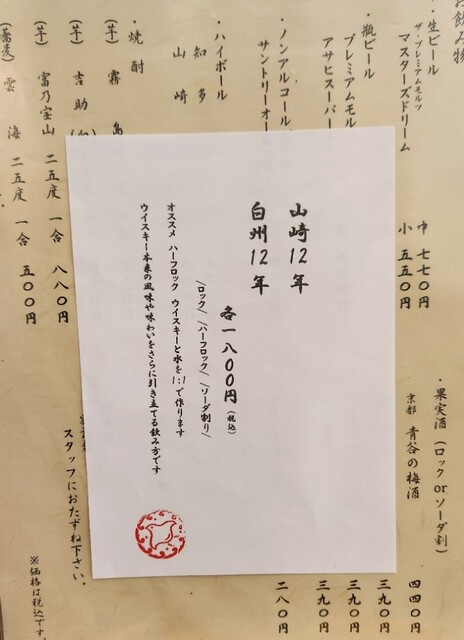 お飲み物
・生ビール
ザ・プレミアムモルツ
マスターズドリーム
中 七七〇円
小 五五〇円
・瓶ビール
プレミアムモル
アサヒスーパー
・ノンアルコール
サントリーオー
・ハイボール
知多
山崎
・焼酎
(芋) 霧島
(芋) 吉助
(芋) 富乃宝山 二五度 一合 八八〇円
(蕎麦) 雲海 二五度 一合 五〇〇円
・果実酒(ロックorソーダ割)
京都 青谷の梅酒
四四〇円
三九〇円
三九〇円
三九〇円
二八〇円
スタッフにおたずね下さい。
※価格は税込です。
山崎12年
白州12年
各一八〇〇円(税込)
/ロック/ /ハーフロック/ /ソーダ割り/
オススメ ハーフロック ウイスキーと水を1:1で作ります
ウイスキー本来の風味や味わいをさらに引き立てる飲み方です